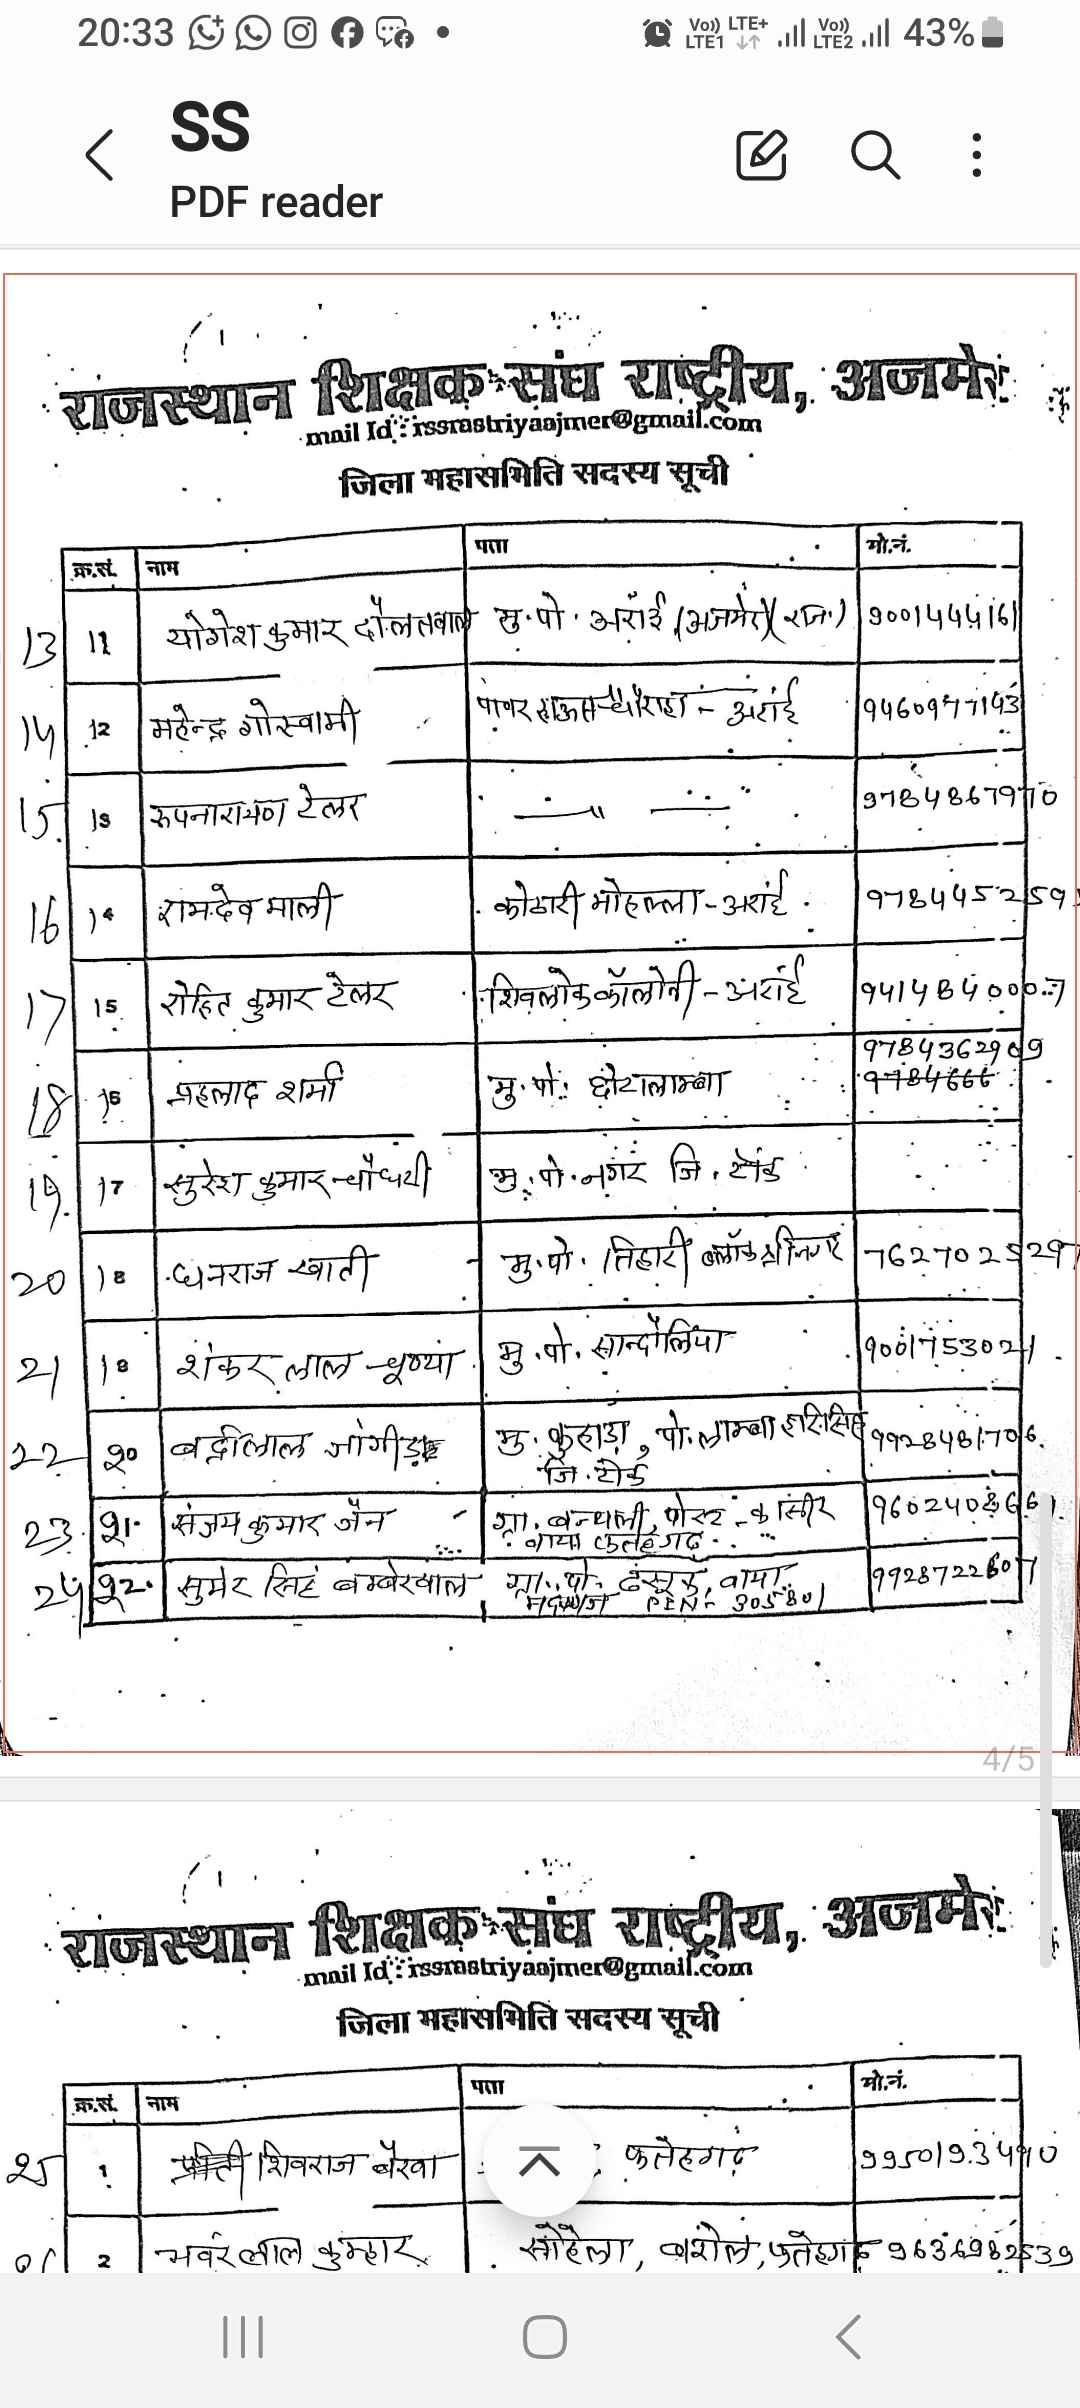 20:33
Vo)) LTE1 LTE+ Vo)) LTE2 43%
SS
PDF reader
राजस्थान शिक्षक संघ राष्ट्रीय, अजमेर
mail Id : rssrastriyaajmer@gmail.com
जिला महासमिति सदस्य सूची
क्र.सं. नाम पता मो.नं.
13 11 योगेश कुमार दौलतवाल मु.पो. अराँई (अजमेर)(राज.)
14 12 महेन्द्र गोस्वामी पावर हाऊस चौराहा - अरांई 9460977143
15. 13 रूपनारायण टेलर — 〃 — 9784867970
16 14 रामदेव माली कोठारी मोहल्ला - अरांई
17 15 रोहित कुमार टेलर शिवलोक कॉलोनी - अरांई 9414840007
18 16 प्रहलाद शर्मा मु.पो. छोटालाम्बा 9784362909
9784666
19. 17 सुरेश कुमार चौधरी मु.पो. नगर जि.
20 18 धनराज खाती मु.पो. तिहारी ब्लॉक श्रीनगर 7627025297
21 19 शंकर लाल मु.पो. 9001753021
22 20 बद्रीलाल जांगीड़ मु. कुहाड़ा, पो. लाम्बा हरिसिंह 9928481706
जि. टोंक
23 21. संजय कुमार जैन ग्रा. पोस्ट
वाया फतेहगढ़
24 22. सुमेर सिंह ग्रा. पो. वाया 9928722607
PIN - 305801
4/5
राजस्थान शिक्षक संघ राष्ट्रीय, अजमेर
mail Id : rssrastriyaajmer@gmail.com
जिला महासमिति सदस्य सूची
क्र.सं. नाम पता मो.नं.
25 1 शिवराज बैरवा फतेहगढ़ 9950193490
2 भवंर लाल कुम्हार फतेहगढ़ 9636982539